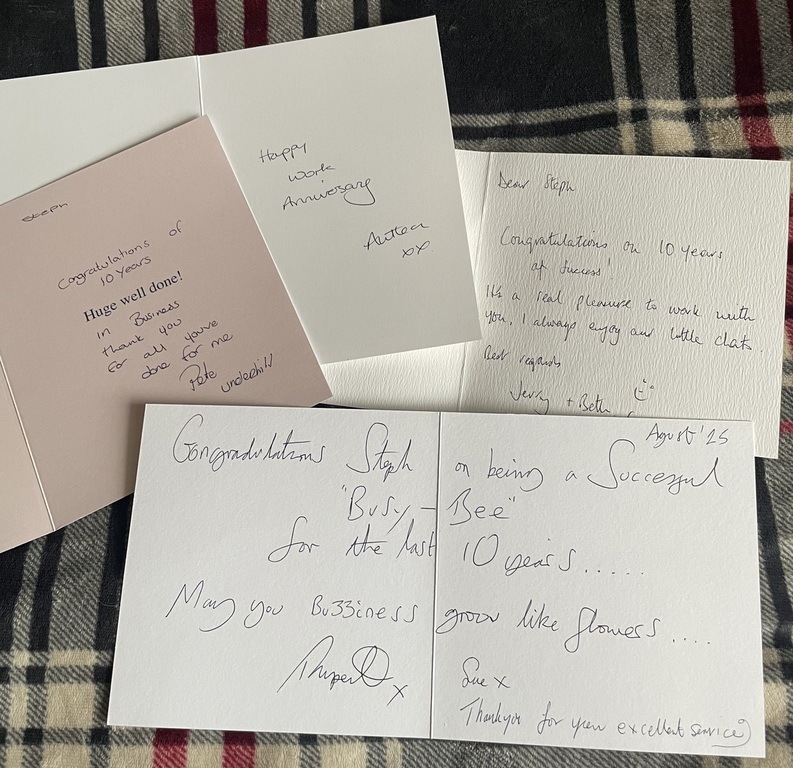 Happy
work
Anniversary
xx
Steph
Congratulations of
10 Years
Huge well done!
in Business
thank you
for all you've
done for me
Pete
underhill
Dear Steph
Congratulations on 10 years
of success!
It's a real pleasure to work with
you, I always enjoy our little chats.
Best regards
Jerry + Beth
Agust '25
Congradulations Steph on being a Successful
"Busy - Bee"
for the last 10 years.....
May you Bu33iness grow like flowers....
Rupert x
Sue x
Thankyou for your excellent service)